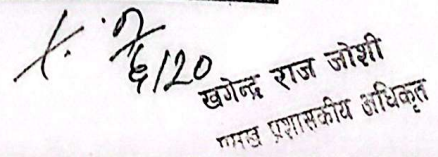 ६/20
खगेन्द्र राज जोशी
प्रमुख प्रशासकीय अधिकृत